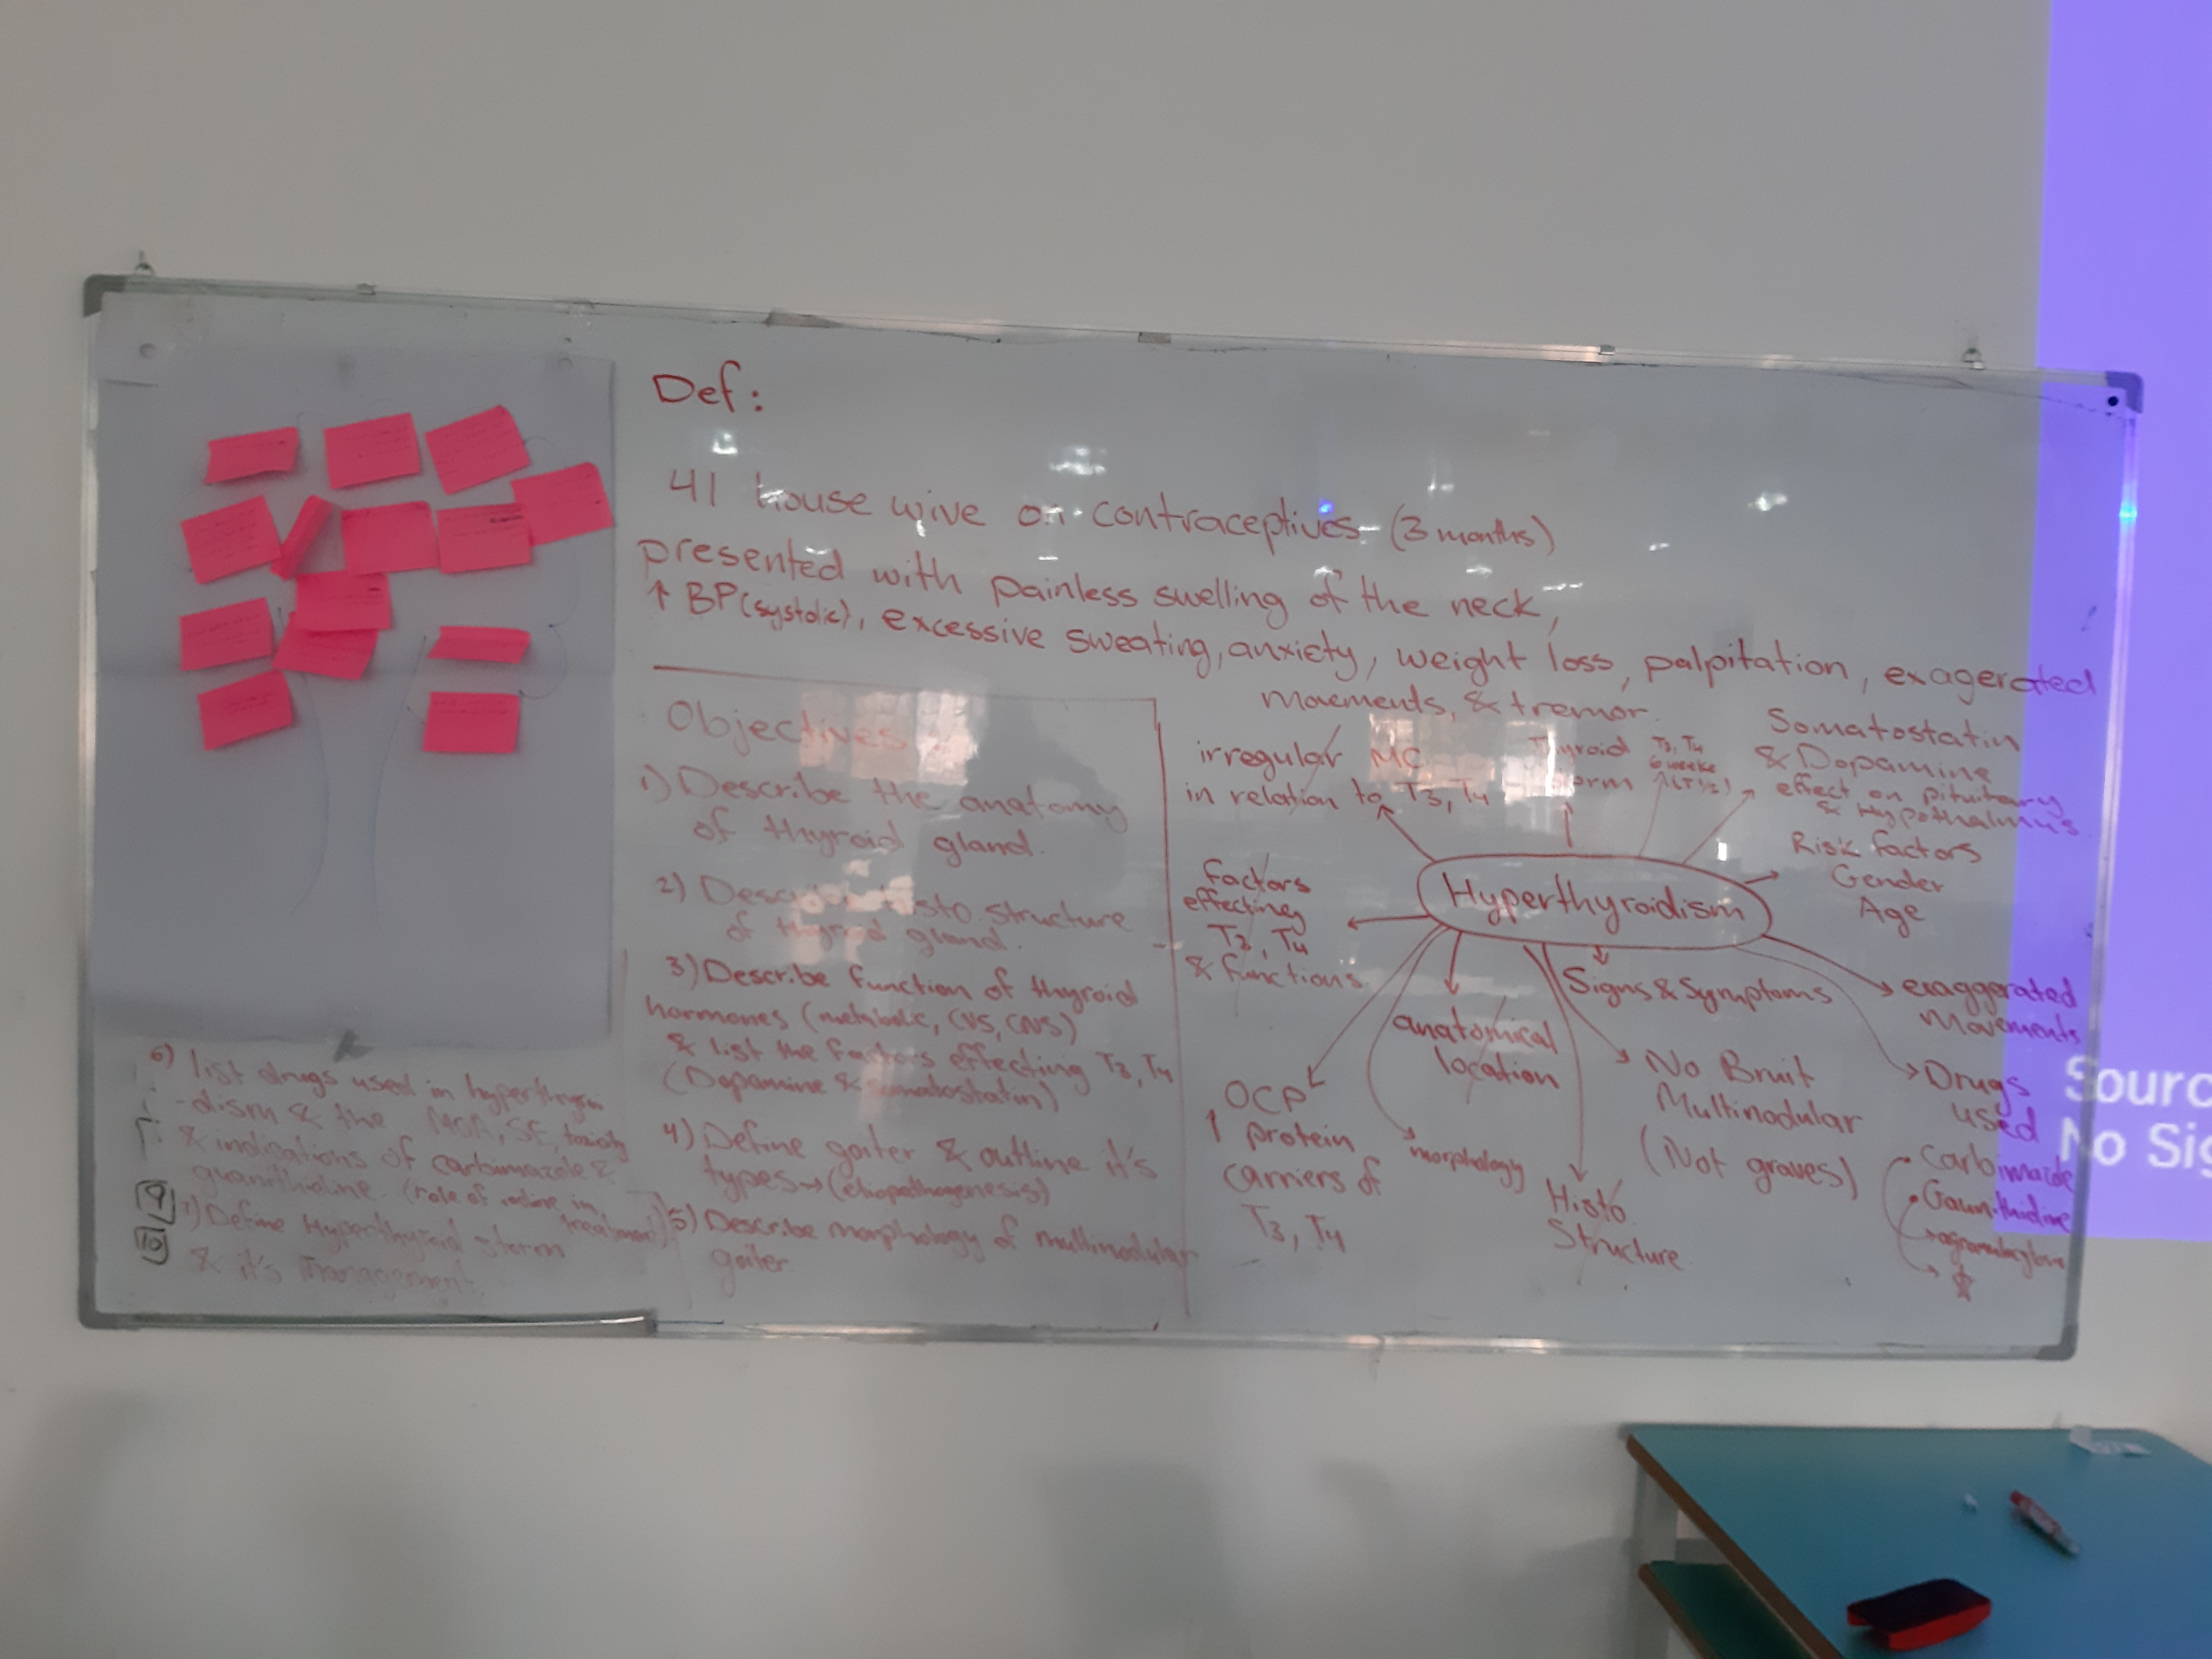 Def:
41 house wive on contraceptives (3 months)
presented with painless swelling of the neck,
↑ BP (systolic), excessive sweating, anxiety, weight loss, palpitation, exagerated
movements, & tremor.
Objectives
1) Describe the anatomy
of thyroid gland.
2) Describe histo structure
of thyroid gland.
3) Describe function of thyroid
hormones (metabolic, CVS, CNS)
& list the factors effecting T3, T4
(Dopamine & somatostatin)
4) Define goiter & outline it's
types → (etiopathogenesis)
5) Describe morphology of multinodular
goiter
6) list drugs used in hyperthyroi
-dism & the MOA, SE, toxicity
& indications of carbimazole &
guanithidine. (role of iodine in
treatment)
7) Define Hyperthyroid storm
& it's management
9
10
irregular MC
in relation to T3, T4
Thyroid
storm
T3, T4
6 weeks
(T 1/2)
Somatostatin
& Dopamine
effect on pituitary
& Hypothalmus
Risk factors
Gender
Age
Hyperthyroidism
Factors
effecting
T3, T4
& functions
OCP
↑ protein
carriers of
T3, T4
morphology
anatomical
location
Histo
Structure
Signs & Symptoms
No Bruit
Multinodular
(Not graves)
exaggerated
movements
Drugs
used
Sourc
No Sig